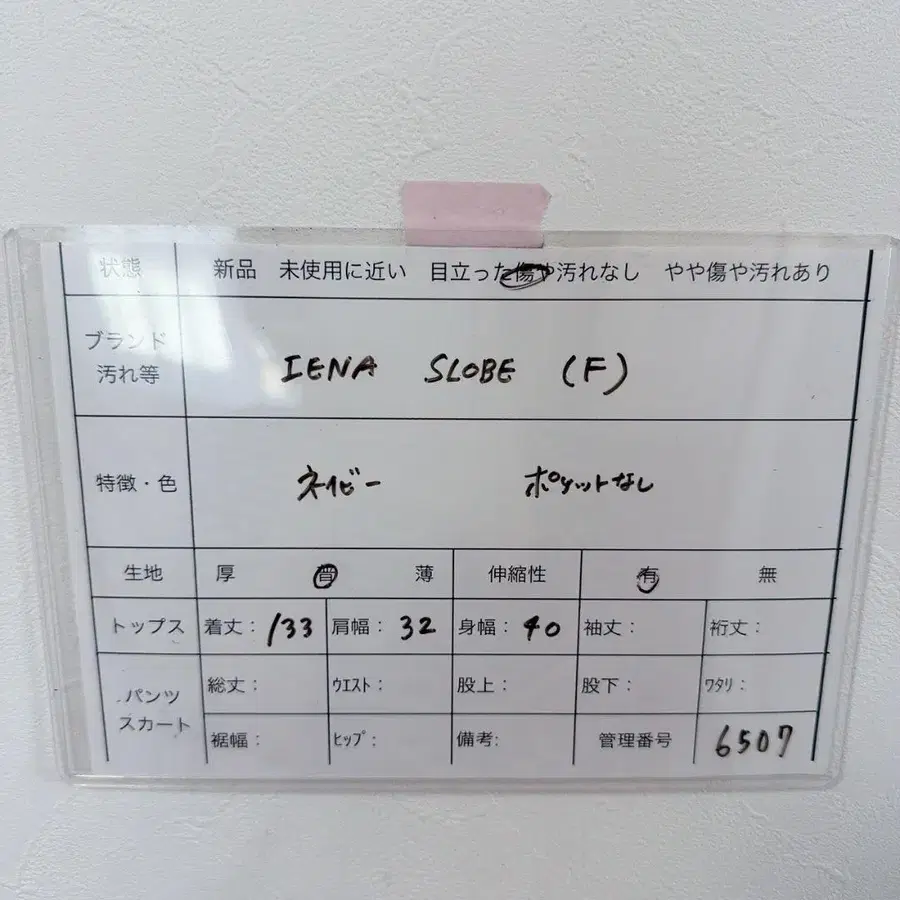 状態 新品 未使用に近い 目立った傷や汚れなし やや傷や汚れあり
ブランド
汚れ等
IENA SLOBE (F)
特徴・色 ネイビー ポケットなし
生地 厚 普 薄 伸縮性 有 無
トップス 着丈: 133 肩幅: 32 身幅: 40 袖丈: 裄丈:
パンツ
スカート
総丈: ウエスト: 股上: 股下: ワタリ:
裾幅: ヒップ: 備考: 管理番号 6507